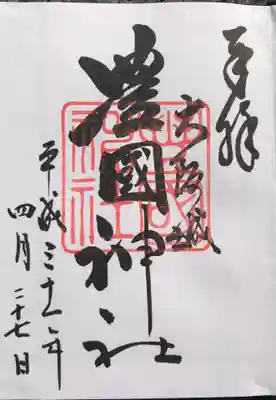 奉拝
大阪城
豊國神社
平成三十一年
四月二十七日